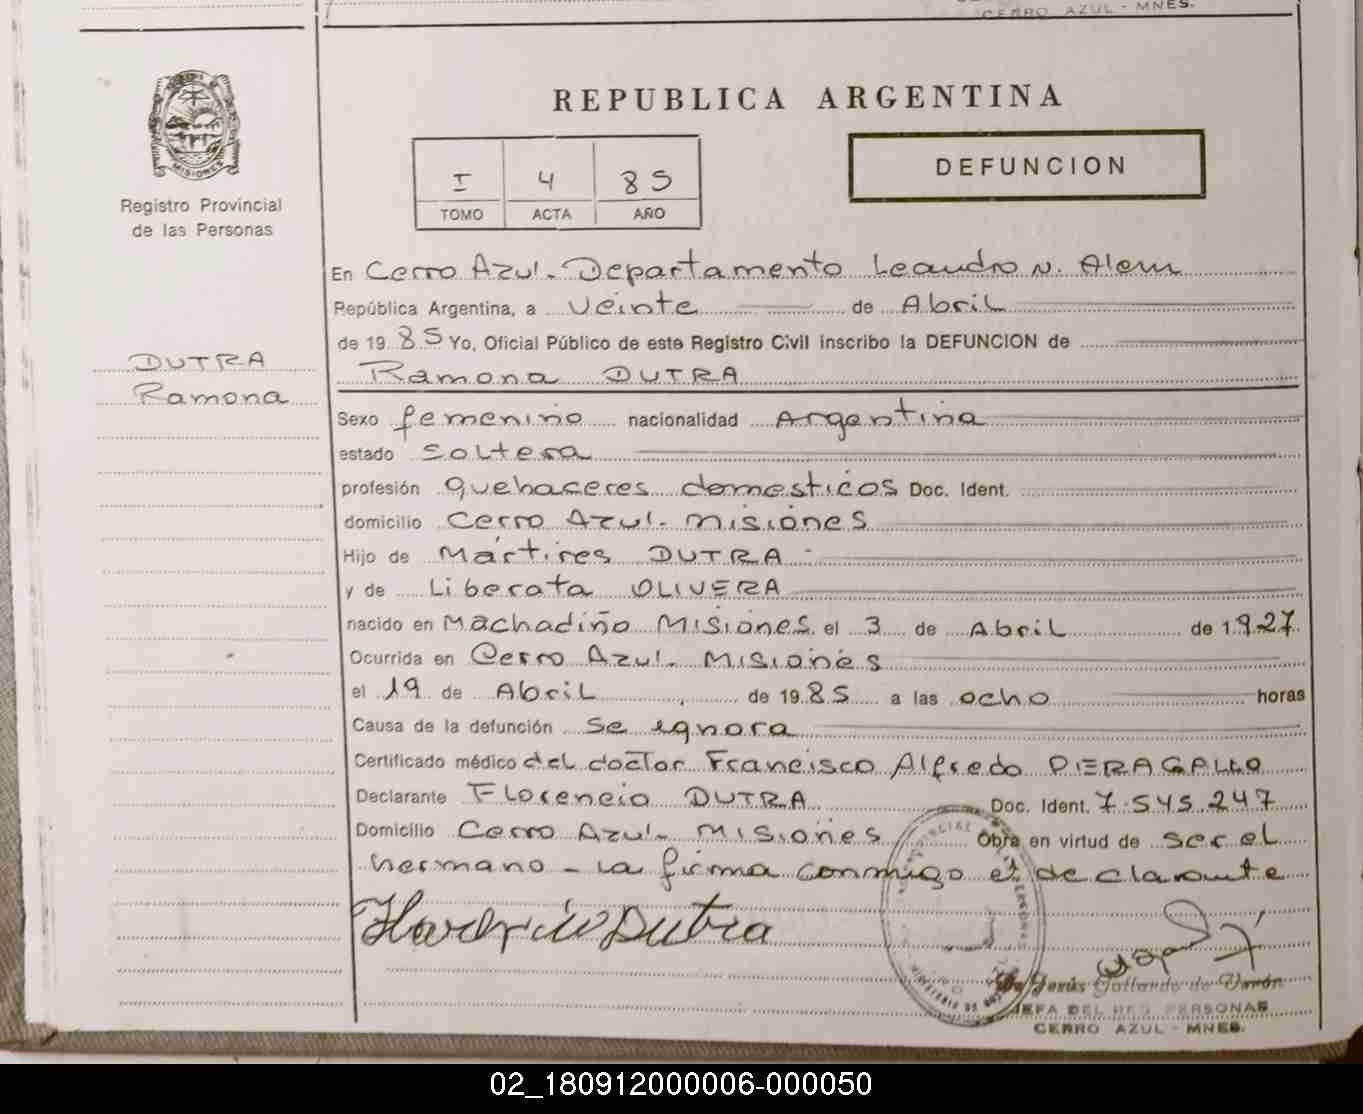 CERRO AZUL - MNES.
MISIONES
Registro Provincial
de las Personas
REPUBLICA ARGENTINA
I 4 85
TOMO ACTA AÑO
DEFUNCION
DUTRA
Ramona
En Cerro Azul. Departamento Leandro N. Alem
República Argentina, a veinte de Abril
de 1985 Yo, Oficial Público de este Registro Civil inscribo la DEFUNCION de
Ramona DUTRA
Sexo femenino nacionalidad Argentina
estado soltera
profesión quehaceres domesticos Doc. Ident.
domicilio Cerro Azul. Misiones
Hijo de Mártires DUTRA
y de Liberata OLIVERA
nacido en Machadiño Misiones. el 3 de Abril de 1927.
Ocurrida en Cerro Azul. Misiones
el 19 de Abril de 1985 a las ocho horas
Causa de la defunción se ignora
Certificado médico del doctor Francisco Alfredo PIERAGALLO
Declarante Florencio DUTRA Doc. Ident. 7.545.247
Domicilio Cerro Azul. Misiones Obra en virtud de ser el
hermano - La firma conmigo el declarante
Florencio Dutra
Jesús Gallardo de
JEFA DEL REG. PERSONAS
CERRO AZUL - MNES.
02_180912000006-000050